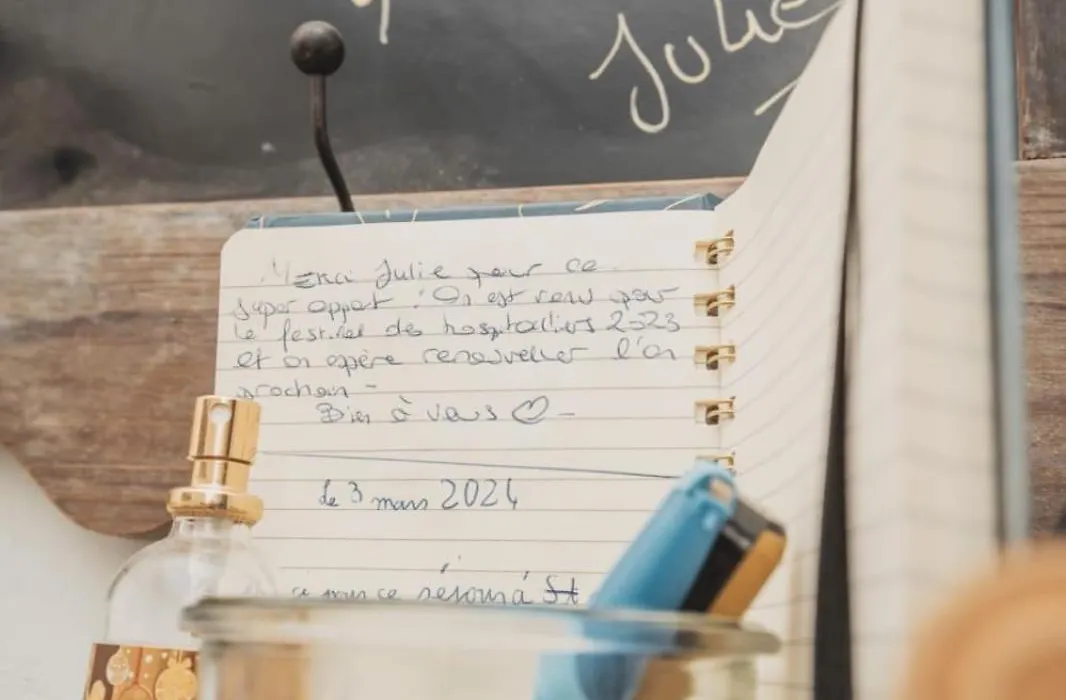 Julie
Merci Julie pour ce
super appart ! On est venu pour
le festival des hospitaliers 2023
et on espère renouveller l'an
prochain -
Bien à vous ♡ -
Le 3 mars 2024
séjour à St